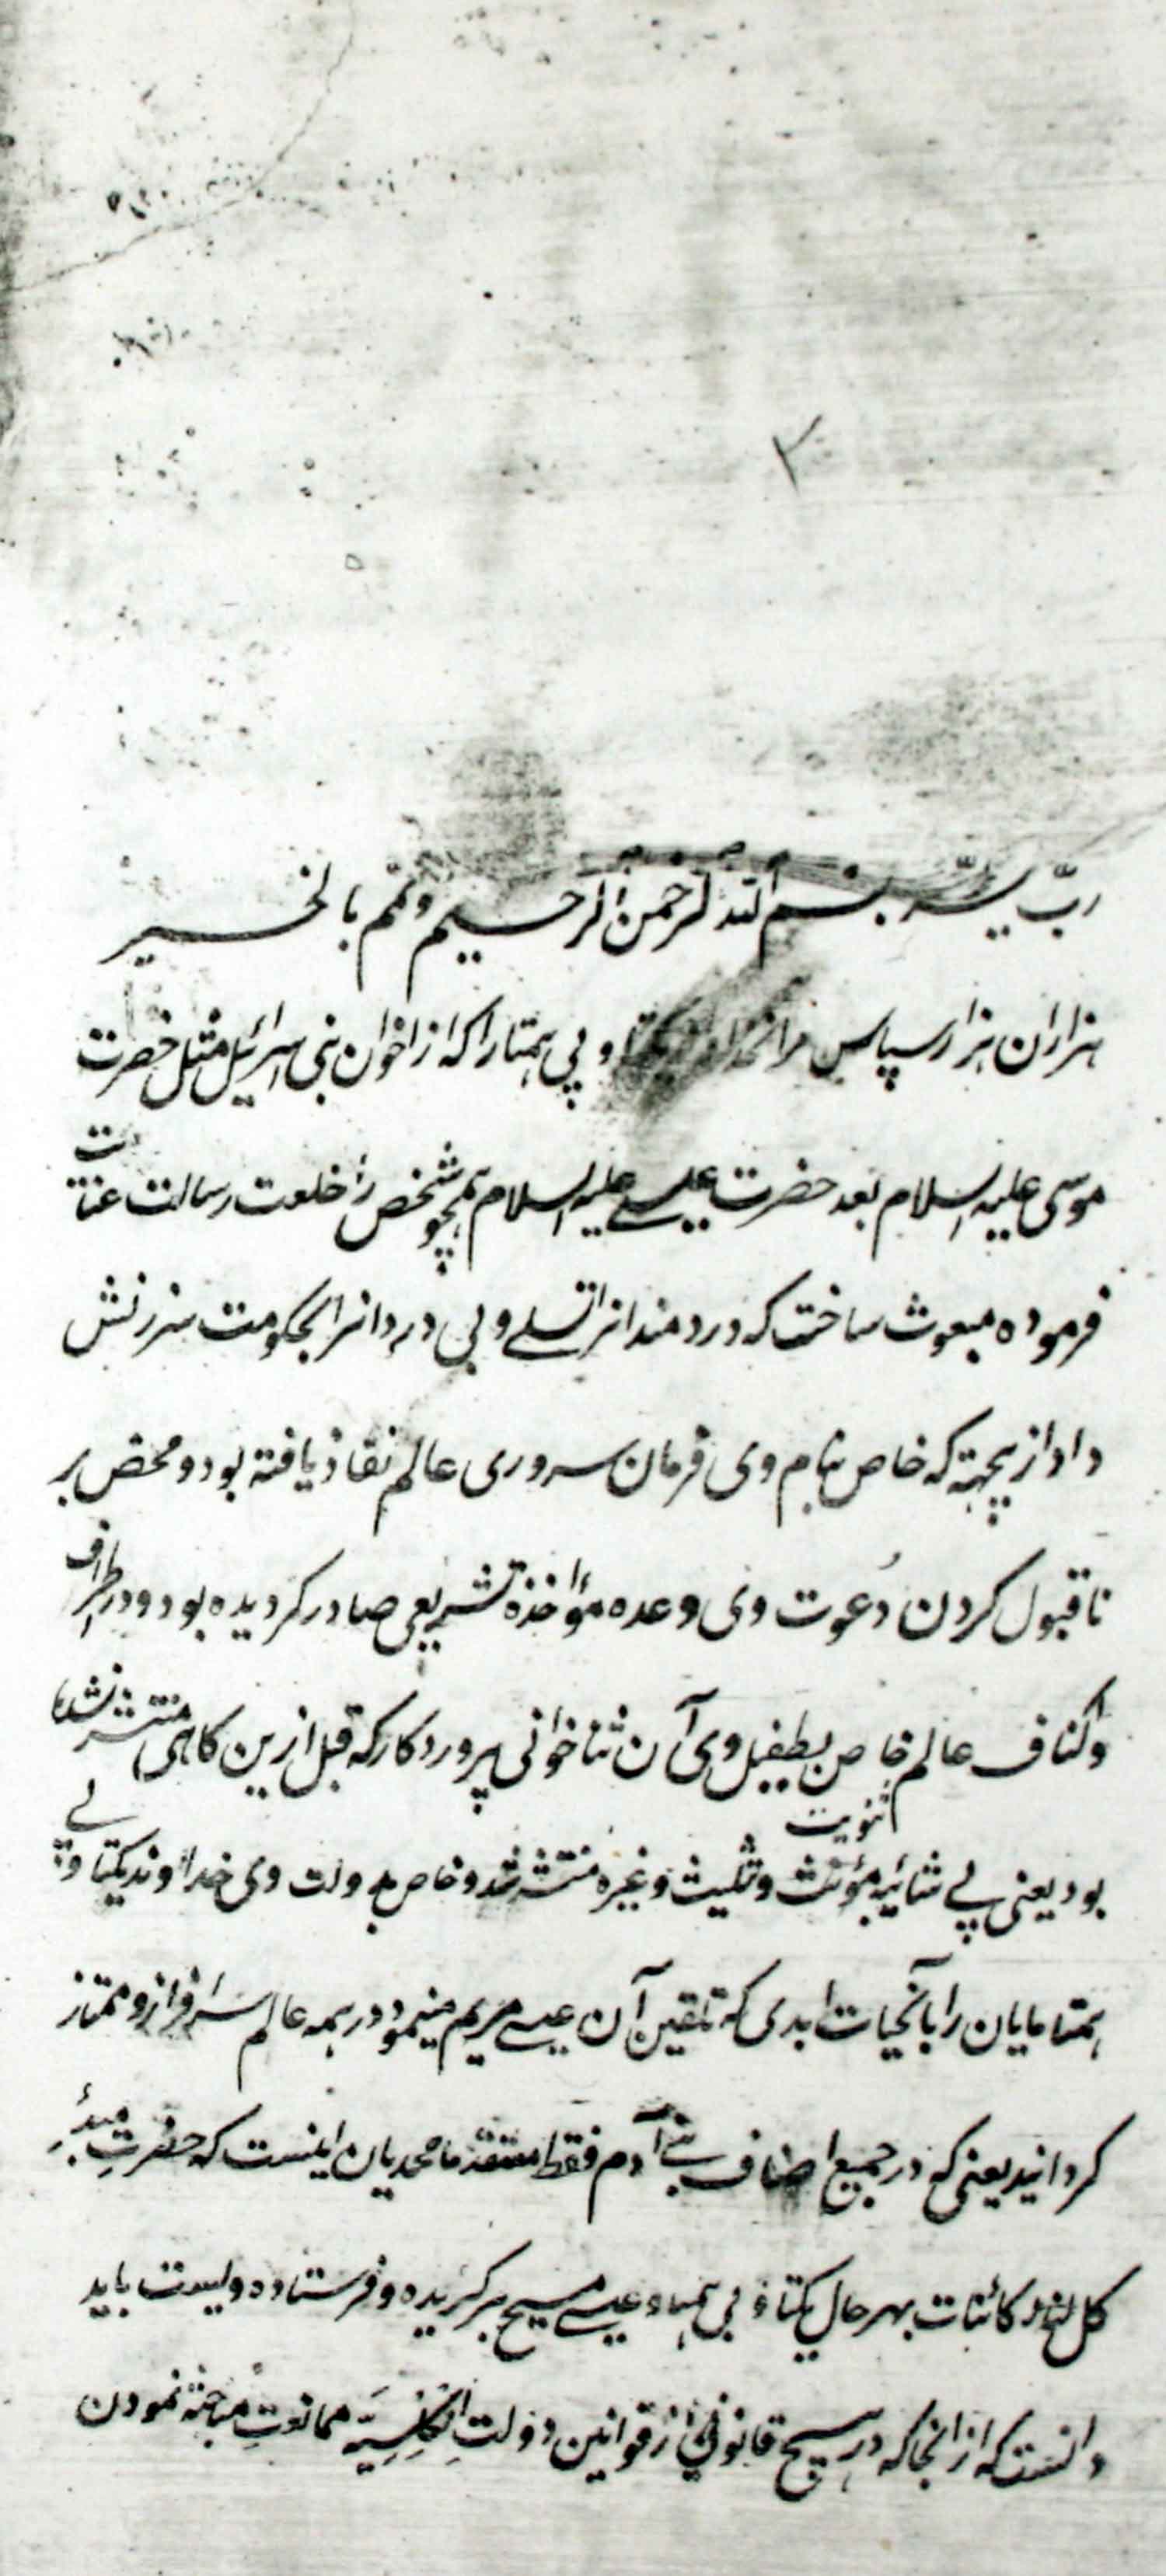 ۳
ربّ یسّر بسم الله الرحمن الرحیم وتمم بالخیر
هزاران هزار سپاس مر آنخداوند یکتا و بی همتا را که از اخوان بنی اسرائیل مثل حضرت
موسی علیه السلام بعد حضرت عیسے علیه السلام همچو شخص را خلعت رسالت عنایت
فرموده مبعوث ساخت که دردمندانرا تسلے و بی دردانرا بحکومت سرزنش
داد ازیجهته که خاص بنام وی فرمان سروری عالم نفاذ یافته بود و محض بر
ناقبول کردن دعوت وی وعده مؤاخذه تشریعی صادر کردیده بود و در اطراف
واکناف عالم خاص بطفیل وی آن ثناخوانی پروردکار که قبل ازین کاهی منتشر نشده
بود یعنی بے شائبه ثنویت وتثلیث وغیره منتشر شد و خاص بدولت وی خداوند یکتا و بے
همتا مایان را بآنحیات ابدی که تلقین آن عیسے مریم مینمود در همه عالم سرافراز و ممتاز
کردانید یعنی که در جمیع اصناف بنے آدم فقط معتقد ما محمدیان اینست که حضرتِ مبدأِ
کل کائنات بهرحال یکتا و بی همتا و عیسے مسیح برکزیده و فرستاده ویست باید
دانست که از انجا که در هیچ قانونی از قوانین دولتِ انکلیسیّه ممانعتِ مباحثه نمودن